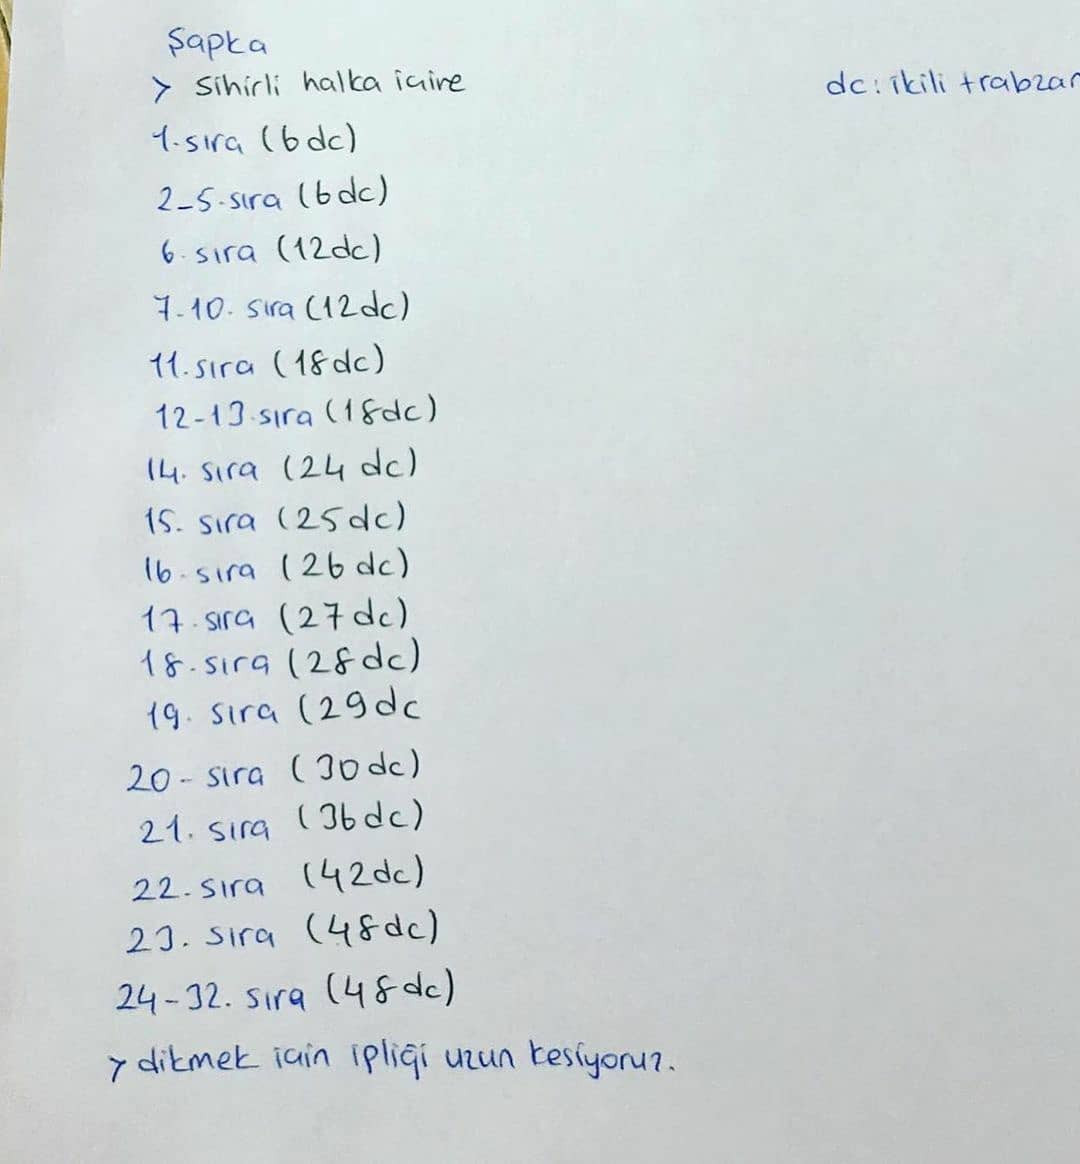 Şapka
> Sihirli halka içine
dc: ikili trabzan
1. sıra (6dc)
2-5. sıra (6dc)
6. sıra (12dc)
7-10. sıra (12dc)
11. sıra (18dc)
12-13. sıra (18dc)
14. sıra (24 dc)
15. sıra (25dc)
16. sıra (26 dc)
17. sıra (27dc)
18. sıra (28dc)
19. sıra (29dc
20- sıra (30dc)
21. sıra (36dc)
22. sıra (42dc)
23. sıra (48dc)
24-32. sıra (48dc)
> dikmek için ipliği uzun kesiyoruz.